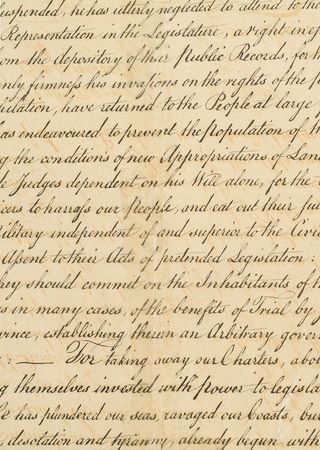 suspended, he has utterly neglected to attend to the
Representation in the Legislature, a right in
om the depository of their Public Records, for th
nly firmness his invasions on the rights of the p
pulation, have returned to the People at large f
as endeavoured to prevent the Population of th
g the conditions of new Appropriations of Lan
e Judges dependent on his Will alone, for the
icers to harrass our People, and eat out their su
ilitary independent of and superior to the Civi
Assent to their Acts of pretended Legislation :
hey should commit on the Inhabitants of th
s in many cases, of the benefits of Trial by J
vince, establishing therein an Arbitrary gover
: — For taking away our Charters, abo
g themselves invested with power to legisla
e has plundered our seas, ravaged our Coasts, bur
, desolation and tyranny, already begun with